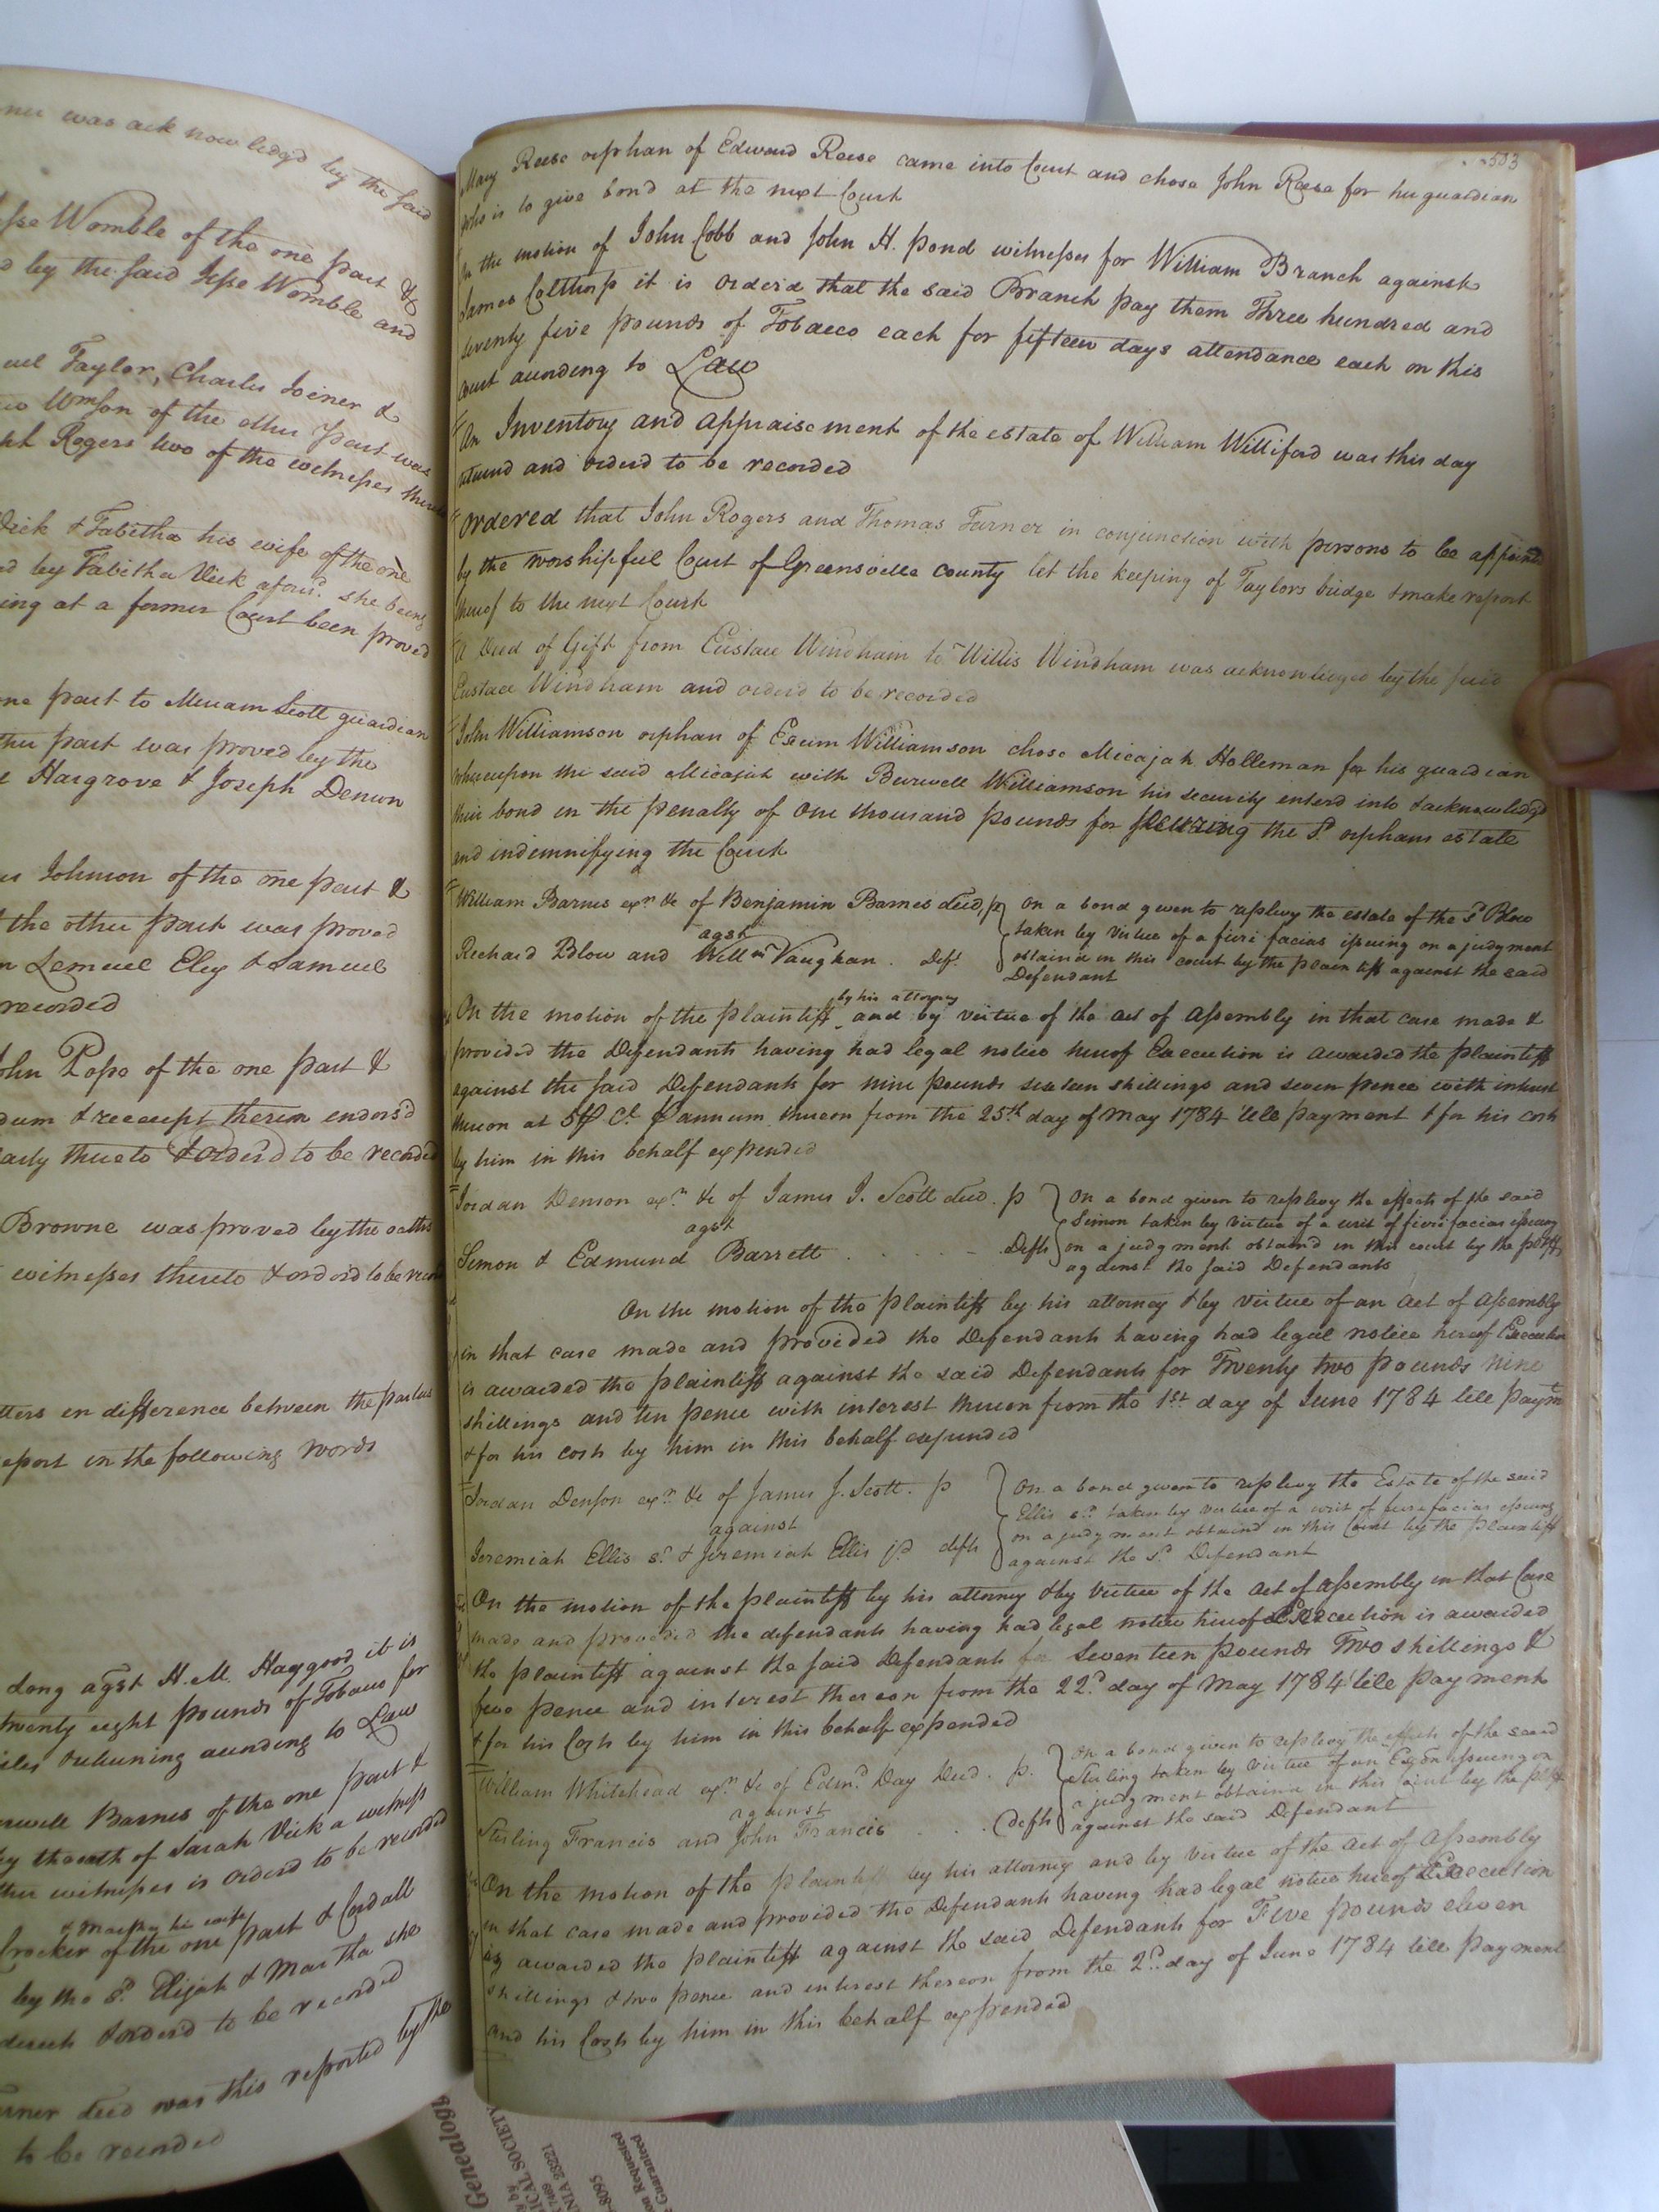 ner was acknowledgd by the said
sse Womble of the one part &
d by the said Jesse Womble and
uel Taylor, Charles Joiner &
Wmson of the other part was
Rogers two of the witnesses there
Vick & Tabitha his wife of the one
d by Tabitha Vick aforsd. she being
ing at a former Court been proved
ne part to Meriam Scott guardian
ther part was proved by the
Hargrove & Joseph Denson
Johnson of the one part &
the other part was proved
n Lemuel Eley & Samuel
recorded
John Pope of the one part &
dum & receipt therein endors'd
arty thereto & Orderd to be recorded
Browne was proved by the oaths
witnesses thereto & orderd to be recor
tters in difference between the parties
eport in the following words
long agst H. M. Haygood it is
twenty eight pounds of Tobacco for
iles returning according to Law
Barnes of the one part &
by the oath of Sarah Vick a witness
ther witnesses is orderd to be recorded
& Martha his wife
Crocker of the one part & Cordall
by the sd. Elijah & Martha she
& orderd to be recorded
urner decd was this reported by the
to be recorded
503
Mary Reese orphan of Edward Reese came into Court and chose John Reese for her guardian
who is to give bond at the next Court
On the motion of John Cobb and John H. Pond witnesses for William Branch against
James Colthorp it is orderd that the said Branch pay them Three hundred and
seventy five pounds of Tobacco each for fifteen days attendance each on this
court according to Law
An Inventory and appraisement of the estate of William Williford was this day
returnd and orderd to be recorded
Ordered that John Rogers and Thomas Turner in conjunction with persons to be appoind
by the worshipful Court of Greensville County let the keeping of Taylors bridge & make report
thereof to the next Court
A Deed of Gift from Eustace Windham to Willis Windham was acknowledged by the said
Eustace Windham and orderd to be recorded
John Williamson orphan of Exum Williamson chose Micajah Holleman for his guardian
whereupon the said Micajah with Burwell Williamson his security enterd into & acknowledgd
their bond in the penalty of One thousand pounds for securing the sd. orphans estate
and indemnifying the Court
William Barnes exr. &c of Benjamin Barnes decd, p
agst
Richard Blow and Willm Vaughan . Deft.
On a bond given to replevy the estate of the sd Blow
taken by virtue of a fieri facias issuing on a judgment
obtaind in this court by the plaintiff against the said
Defendant
On the motion of the plaintiff by his attorney and by virtue of the act of Assembly in that case made &
provided the Defendants having had legal notice hereof Execution is awarded the plaintiff
against the said Defendants for nine pounds sixteen shillings and seven pence with interest
thereon at 5 P Ct. P annum thereon from the 25th day of May 1784 till payment & for his costs
by him in this behalf expended
Jordan Denson exr. &c of James J. Scott decd. p
agst
Simon & Edmund Barrett . . . . . Defts
On a bond given to replevy the effects of the said
Simon taken by virtue of a writ of fieri facias issuing
on a judgment obtaind in this court by the pltff
against the said Defendants
On the motion of the plaintiff by his attorney & by virtue of an act of Assembly
in that case made and provided the Defendants having had legal notice hereof Execution
is awarded the plaintiff against the said Defendants for Twenty two pounds nine
shillings and ten pence with interest thereon from the 1st day of June 1784 till paymt
& for his costs by him in this behalf expended
Jordan Denson exr. &c of James J. Scott. p
against
Jeremiah Ellis sr. & Jeremiah Ellis jr. defts
On a bond given to replevy the Estate of the said
Ellis sr. taken by virtue of a writ of fieri facias issuing
on a judgment obtaind in this Court by the Plaintiff
against the sd. Defendant
On the motion of the plaintiff by his attorney & by virtue of the act of assembly in that Case
made and provided the defendants having had legal notice hereof Execution is awarded
the plaintiff against the said Defendants for Seventeen pounds Two shillings &
five pence and interest thereon from the 22d. day of May 1784 till payment
& for his Costs by him in this behalf expended
William Whitehead exr. &c of Edmd. Day Decd. p.
against
Sterling Francis and John Francis . . . defts
On a bond given to replevy the effects of the said
Sterling taken by virtue of an Exon issuing on
a judgment obtaind in this Court by the pltff
against the said Defendant
On the motion of the plaintiff by his attorney and by virtue of the act of Assembly
in that case made and provided the Defendants having had legal notice hereof Execution
is awarded the plaintiff against the said Defendants for Five pounds eleven
shillings & two pence and interest thereon from the 2d. day of June 1784 till payment
and his Costs by him in this behalf expended
Genealogi
ICAL SOCIETY
NIA 23221
-8095
on Requested
Guaranteed